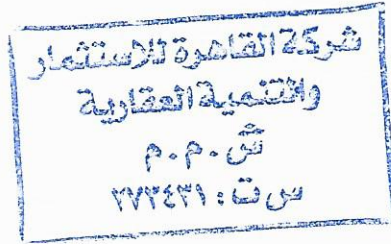 شركة القاهرة للاستثمار
والتنمية العقارية
ش.م.م
س ت: ٢٧٢٤٣١